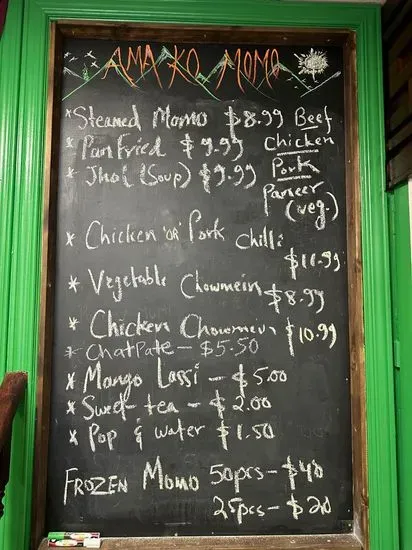 AMA KO MOMO
* Steamed Momo $8.99 Beef
* Pan Fried $9.99 Chicken
* Jhol (Soup) $9.99 Pork
Paneer
(veg.)
* Chicken "or" Pork chilli
$11.99
* Vegetable Chowmein $8.99
* Chicken Chowmein $10.99
* CHATPATE - $5.50
* Mango Lassi - $5.00
* Sweet-tea - $2.00
* Pop & water $1.50
FROZEN MOMO 50pcs - $40
25pcs - $20